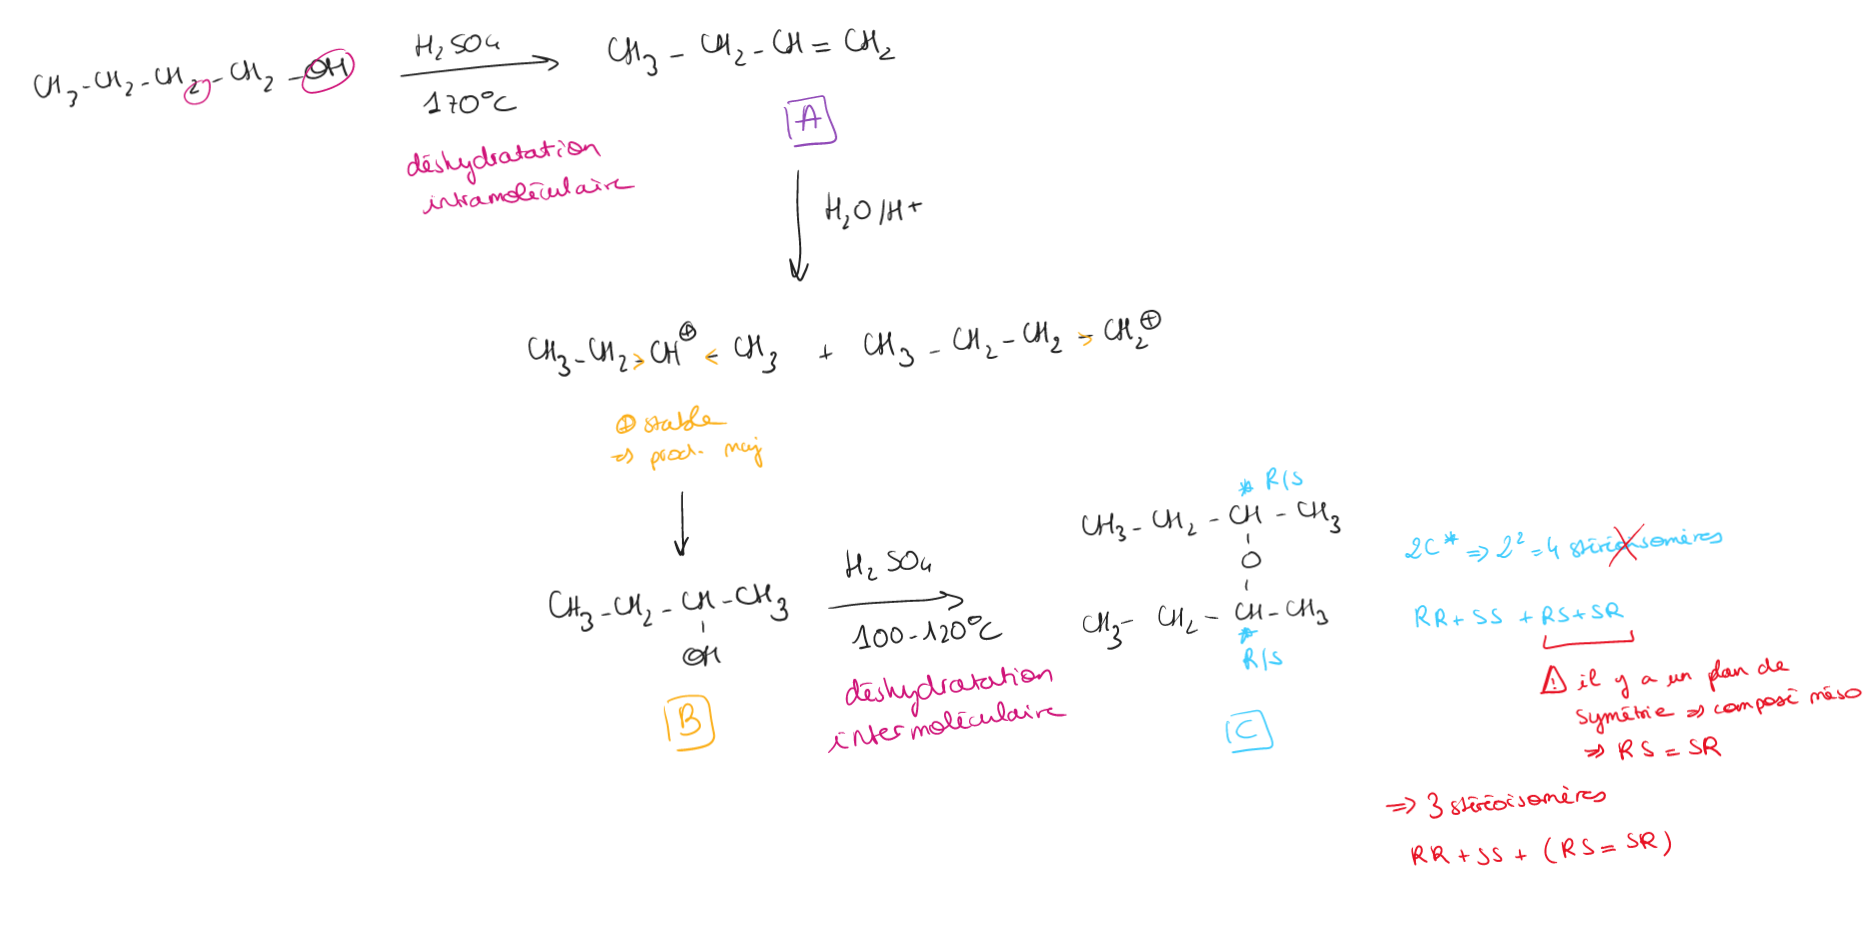 CH3-CH2-CH2-CH2-OH
H2SO4
170°C
déshydratation
intramoléculaire
CH3-CH2-CH=CH2
A
H2O/H+
CH3-CH2-CH⊕-CH3 + CH3-CH2-CH2-CH2⊕
⊕ stable
=> prod. maj
CH3-CH2-CH-CH3
OH
B
H2SO4
100-120°C
déshydratation
intermoléculaire
* R/S
CH3-CH2-CH-CH3
O
CH3-CH2-CH-CH3
*
R/S
C
2C* => 2² = 4 stéréoisomères
RR + SS + RS + SR
⚠ il y a un plan de
symétrie => composé méso
=> RS = SR
=> 3 stéréoisomères
RR + SS + (RS = SR)